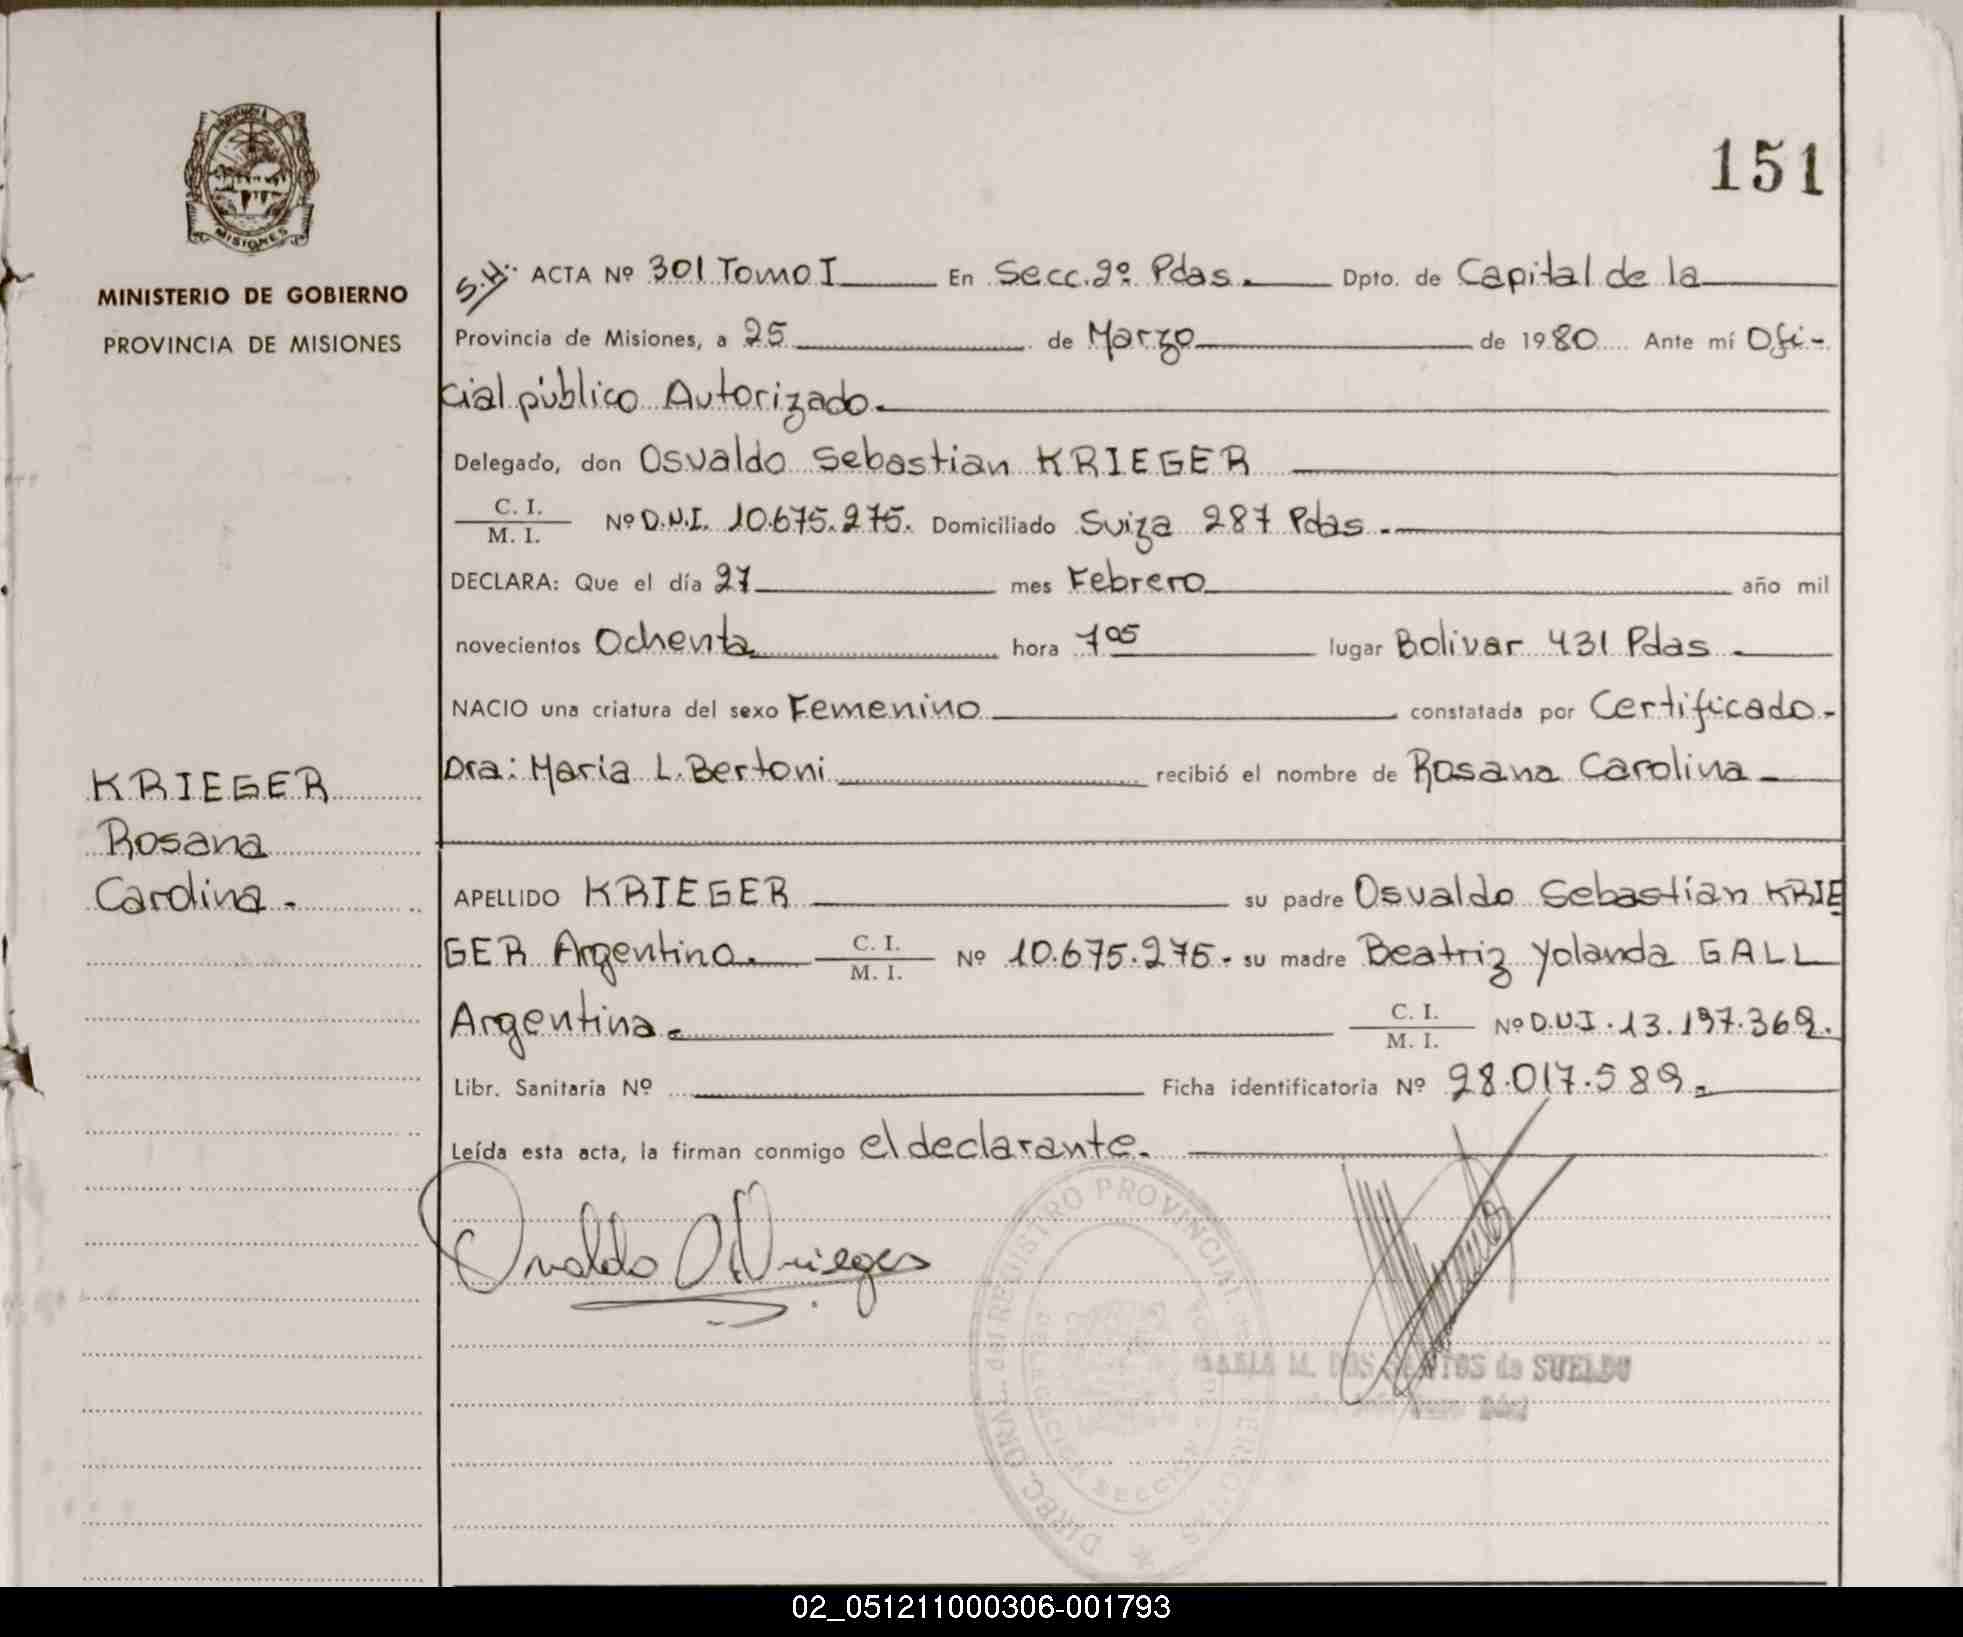 151
MISIONES
MINISTERIO DE GOBIERNO
PROVINCIA DE MISIONES
S.H. ACTA Nº 301 Tomo I En Secc. 2º Pdas. Dpto. de Capital de la
Provincia de Misiones, a 25 de Marzo de 1980 Ante mí Ofi-
cial público Autorizado.
Delegado, don Osvaldo Sebastian KRIEGER
C. I.
M. I. Nº D.N.I. 10.675.275. Domiciliado Suiza 287 Pdas.
DECLARA: Que el día 27 mes Febrero año mil
novecientos Ochenta hora 7 05 lugar Bolivar 431 Pdas
NACIO una criatura del sexo Femenino constatada por Certificado-
Dra: Maria L. Bertoni recibió el nombre de Rosana Carolina
KRIEGER
Rosana
Carolina.
APELLIDO KRIEGER su padre Osvaldo Sebastian KRIE
GER Argentino. C. I.
M. I. Nº 10.675.275. su madre Beatriz Yolanda GALL
Argentina. C. I.
M. I. Nº D.N.I. 13.197.369.
Libr. Sanitaria Nº Ficha identificatoria Nº 28.017.589.
Leída esta acta, la firman conmigo el declarante.
DIREC. GRAL. del REGISTRO PROVINCIAL de
SECCION
MARIA M. DOS SANTOS de SUELDO
02_051211000306-001793